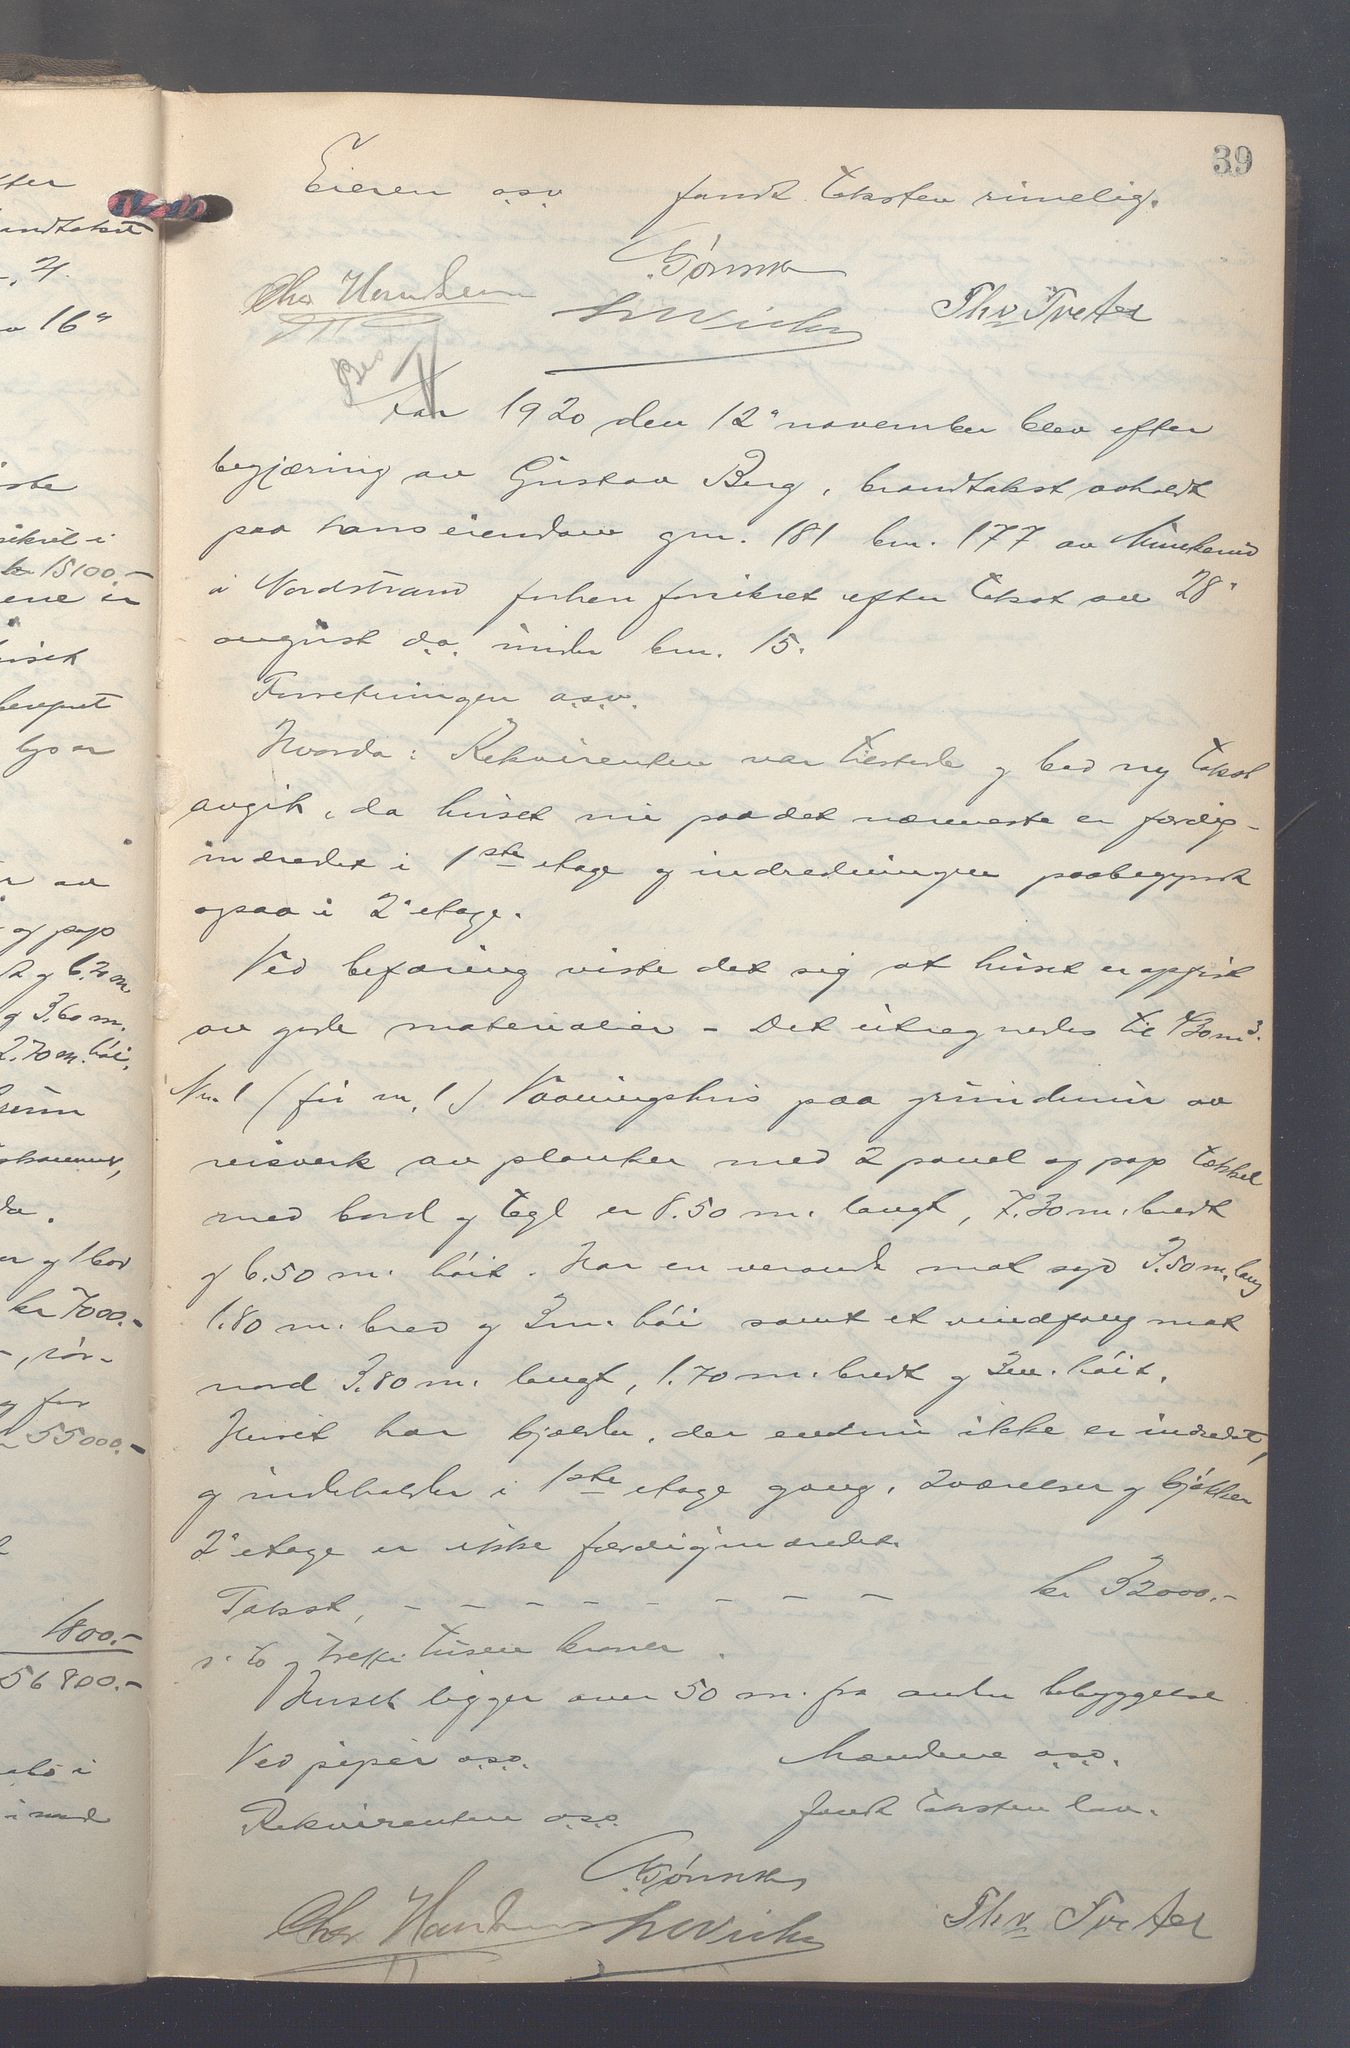 39
Eieren o.s.v. fandt taksten rimelig.
Thv Tveter
Aar 1920 den 12" november blev efter
begjæring av Gustav Berg, brandtakst avholdt
paa hans eiendom gnr. 181 bnr. 177 av Munkerud
i Nordstrand forhen forsikret efter takst av 28"
august d.a. under bnr. 15.
Forretningen o.s.v.
Hvorda: Rekvirenten var tilstede og bad ny takst
avgit, da huset nu paa det nærmeste er færdig-
indredet i 1ste etage og indredningen paabegyndt
ogsaa i 2" etage.
Ved befaring viste det sig at huset er opført
av gode materialier - Det utregnedes til 430 m3.
Nr. 1 (før nr. 1) Vaaningshus paa grundmur av
reisverk av planker med 2 panel og pap tækket
med bord og tegl er 8.50 m. langt, 7.30 m. bredt
og 6.50 m. høit. Har en veranda mot syd 3.50 m. lang
1.80 m. bred og 3 m. høi samt et vindfang mot
nord 3.80 m. langt, 1.70 m. bredt og 3 m. høit.
Huset har kjælder, der endnu ikke er indredet,
og indeholder i 1ste etage gang, 2 værelser og kjøkken
2" etage er ikke færdigindredet.
Takst, - - - - - - - - kr 32000.-
s. to og tretti tusen kroner.
Huset ligger over 50 m. fra anden bebyggelse
Ved piper o.s.v. Mændene o.s.v.
Rekvirenten o.s.v. fandt taksten lav.
Thv Tveter
av 16"
kr 15100.-
og pap
og 6.20 m
og 3.60 m.
2.70 m. høi,
kr 7000.-
55000.-
1800.-
56800.-